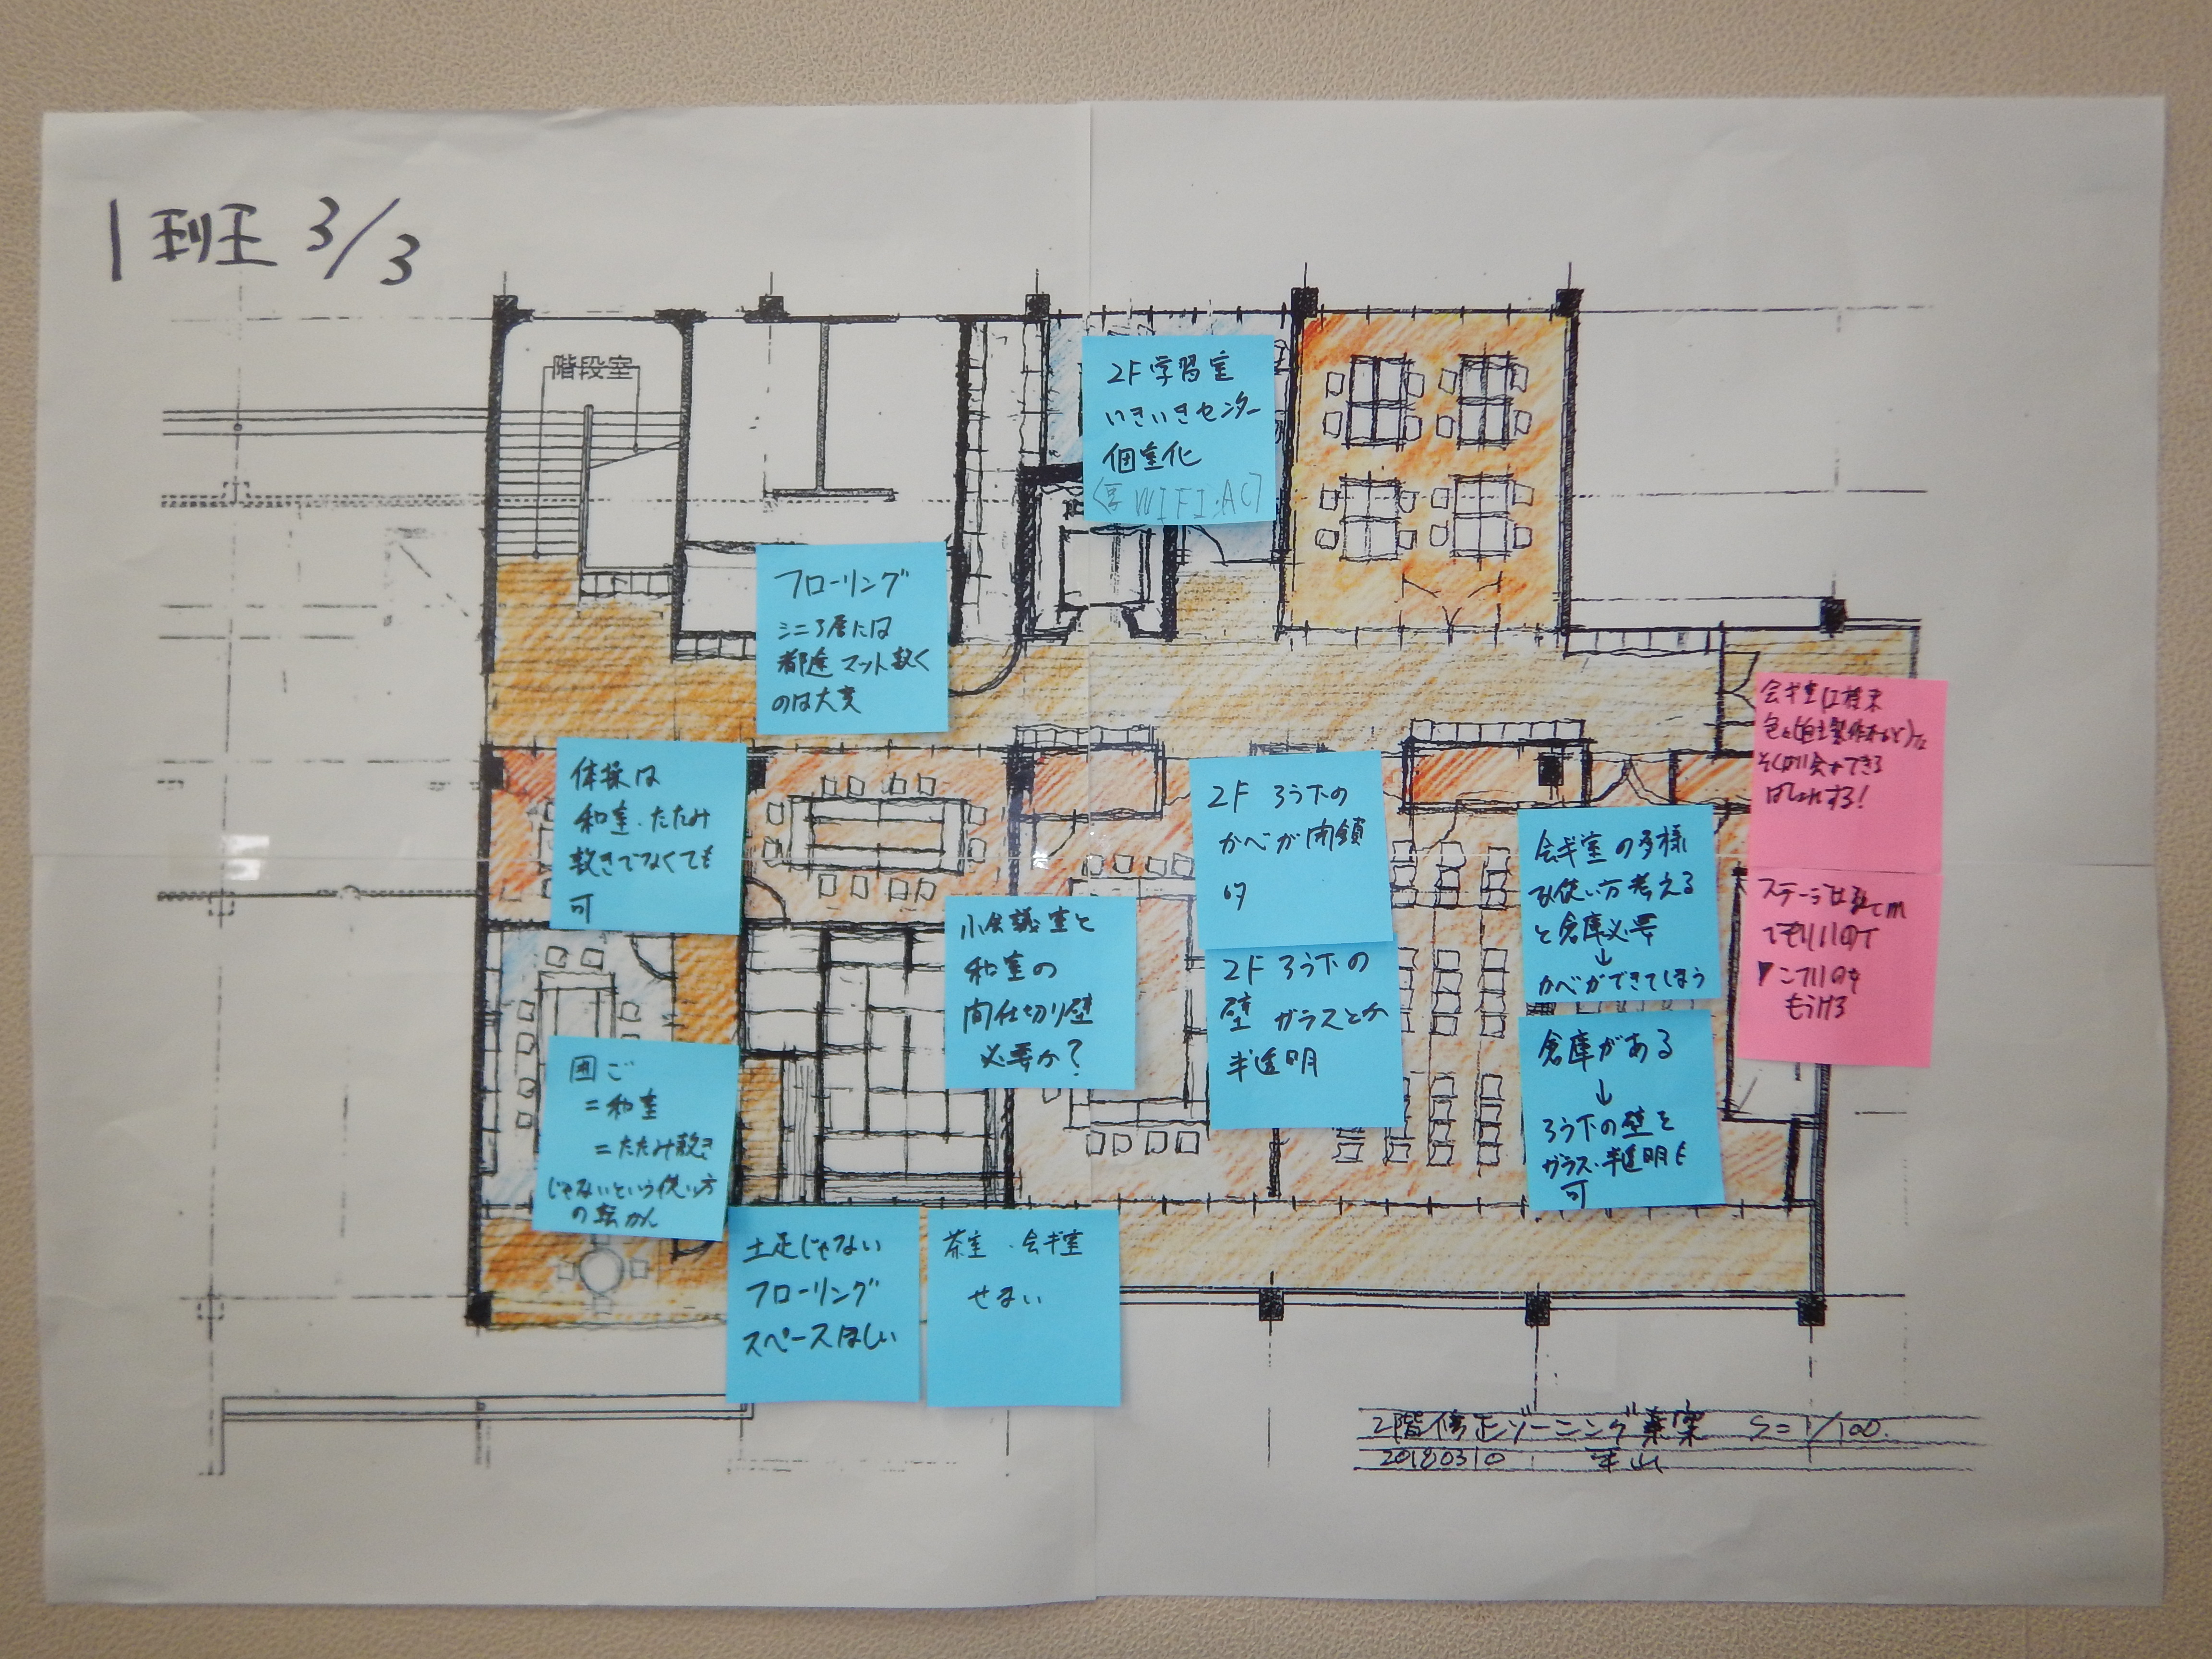 1班 3/3
階段室
2F学習室
いきいきセンター
個室化
WIFI・AC
フローリング
シニア層には
都度マット敷く
のは大変
体操は
和室・たたみ
敷きでなくても
可
2F ろう下の
かべが閉鎖
的
会ギ室は将来
ステージは
でもいいので
もうける
会ギ室の多様
な使い方考える
と倉庫必要
↓
かべができてしまう
小会議室と
和室の
間仕切り壁
必要か?
2F ろう下の
壁 ガラスとか
半透明
倉庫がある
↓
ろう下の壁を
ガラス・半透明も
可
囲ご
=和室
=たたみ敷き
じゃないという使い方
の転かん
土足じゃない
フローリング
スペースほしい
茶室・会ギ室
せまい
2階修正ゾーニング素案 S=1/100.
20180310